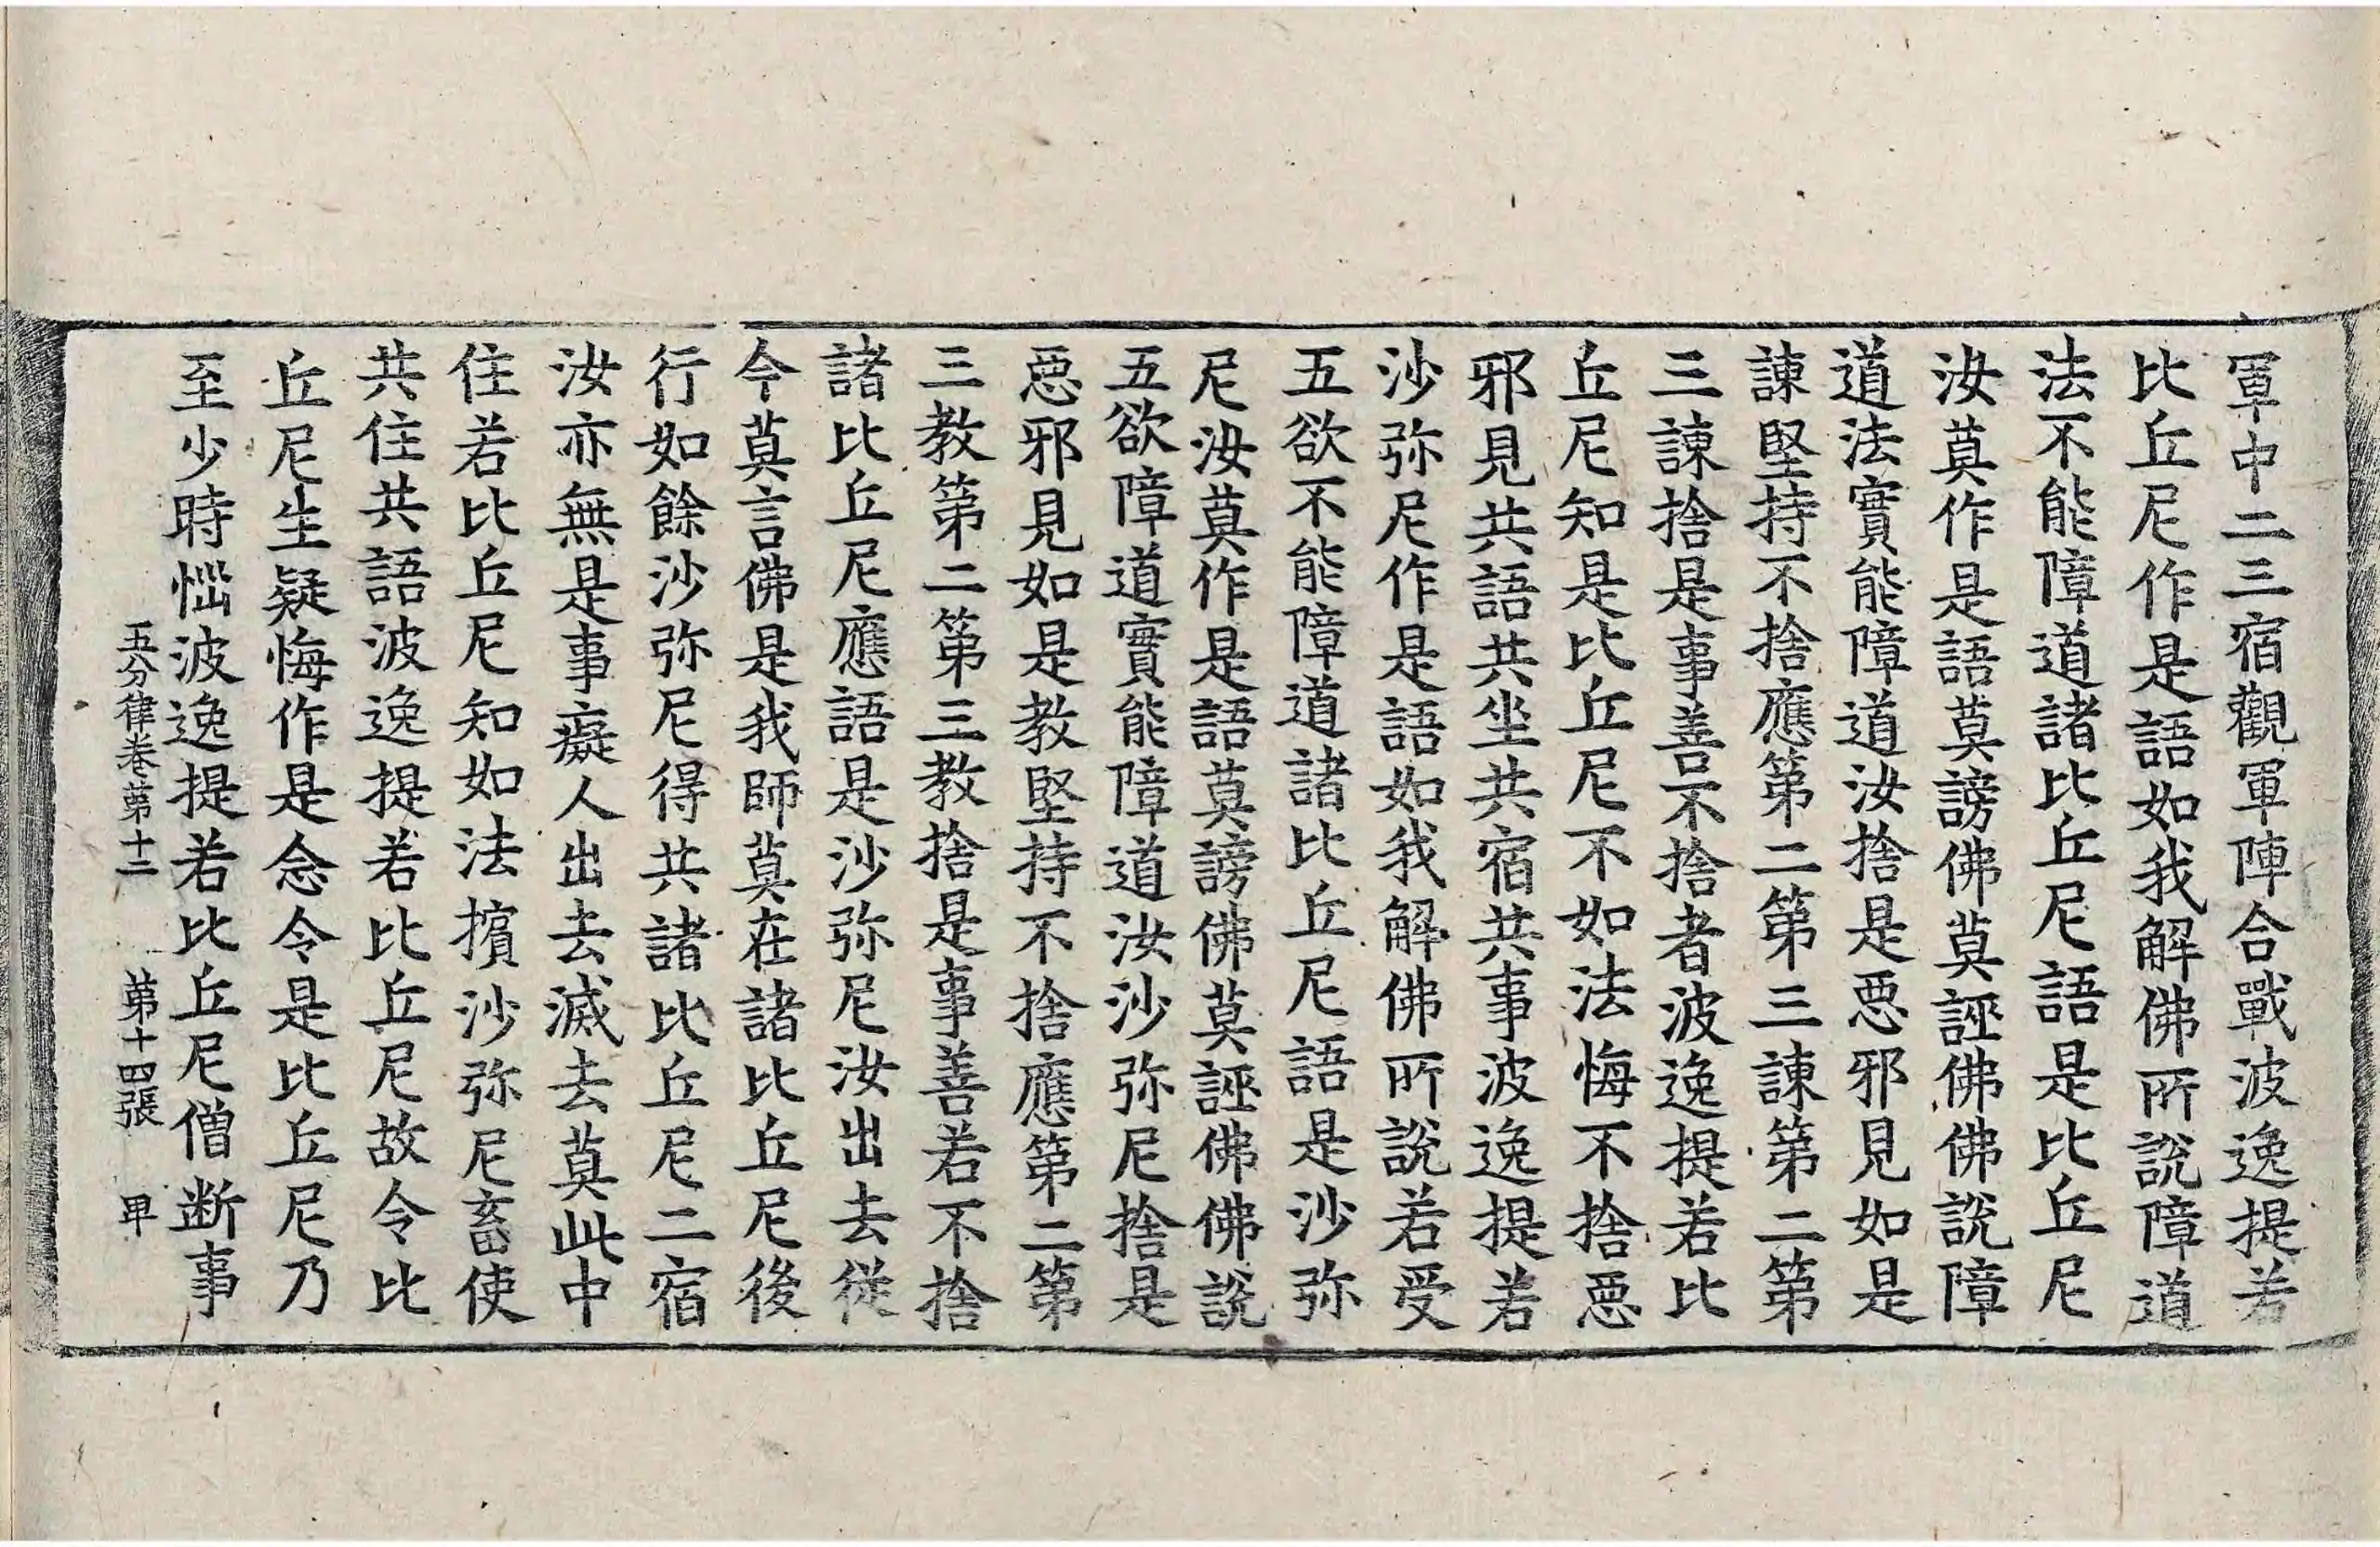 軍中二三宿觀軍陣合戰波逸提若
比丘尼作是語如我解佛所說障道
法不能障道諸比丘尼語是比丘尼
汝莫作是語莫謗佛莫誣佛佛說障
道法實能障道汝捨是惡邪見如是
諫堅持不捨應第二第三諫第二第
三諫捨是事善不捨者波逸提若比
丘尼知是比丘尼不如法悔不捨惡
邪見共語共坐共宿共事波逸提若
沙弥尼作是語如我解佛所說若受
五欲不能障道諸比丘尼語是沙弥
尼汝莫作是語莫謗佛莫誣佛佛說
五欲障道實能障道汝沙弥尼捨是
惡邪見如是教堅持不捨應第二第
三教第二第三教捨是事善若不捨
諸比丘尼應語是沙弥尼汝出去從
今莫言佛是我師莫在諸比丘尼後
行如餘沙弥尼得共諸比丘尼二宿
汝亦無是事癡人出去滅去莫此中
住若比丘尼知如法擯沙弥尼畜使
共住共語波逸提若比丘尼故令比
丘尼生疑悔作是念令是比丘尼乃
至少時惱波逸提若比丘尼僧断事
五分律卷第十二 第十四張